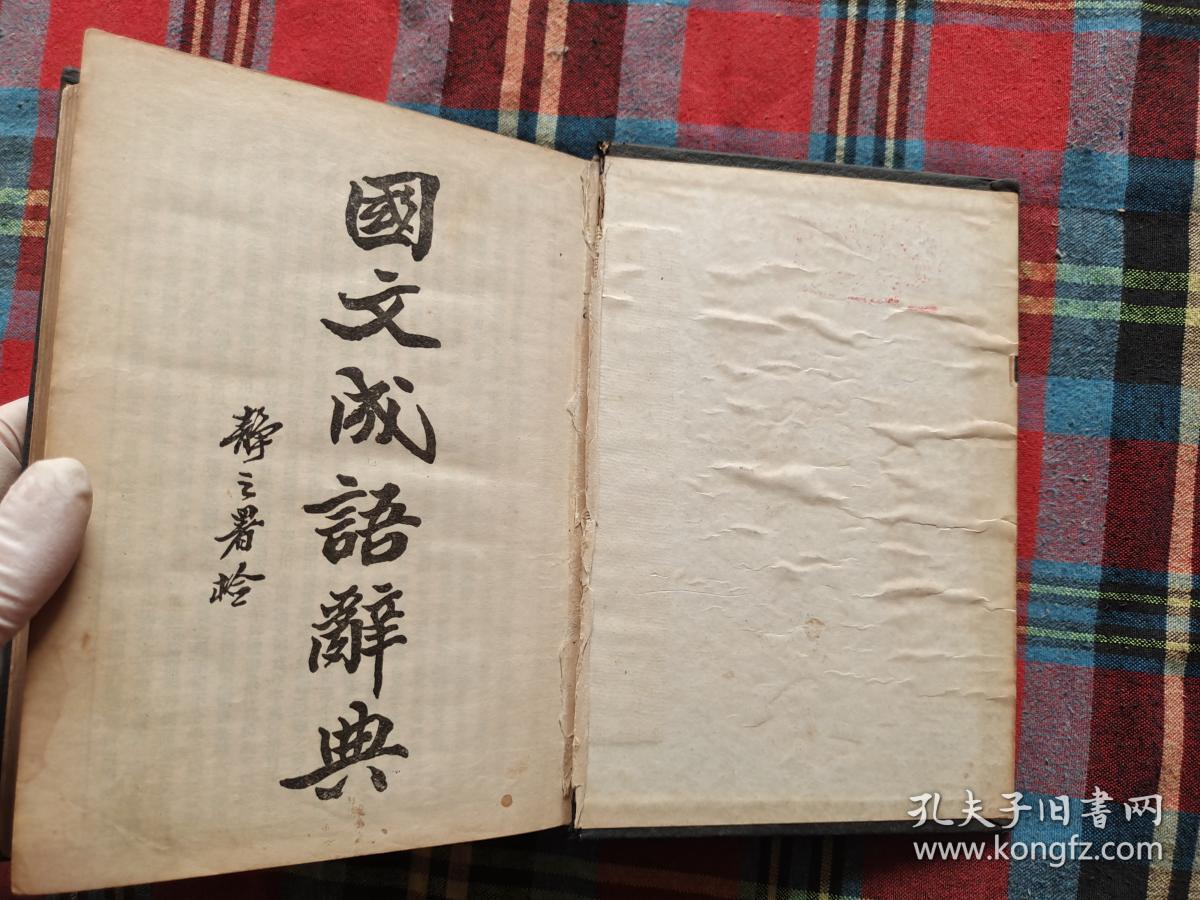 國文成語辭典
靜之署檢
孔夫子旧書网
www.kongfz.com